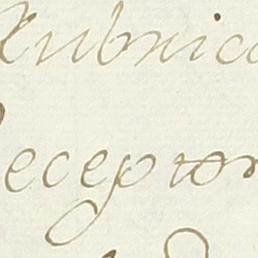 Rubrica
Receptor